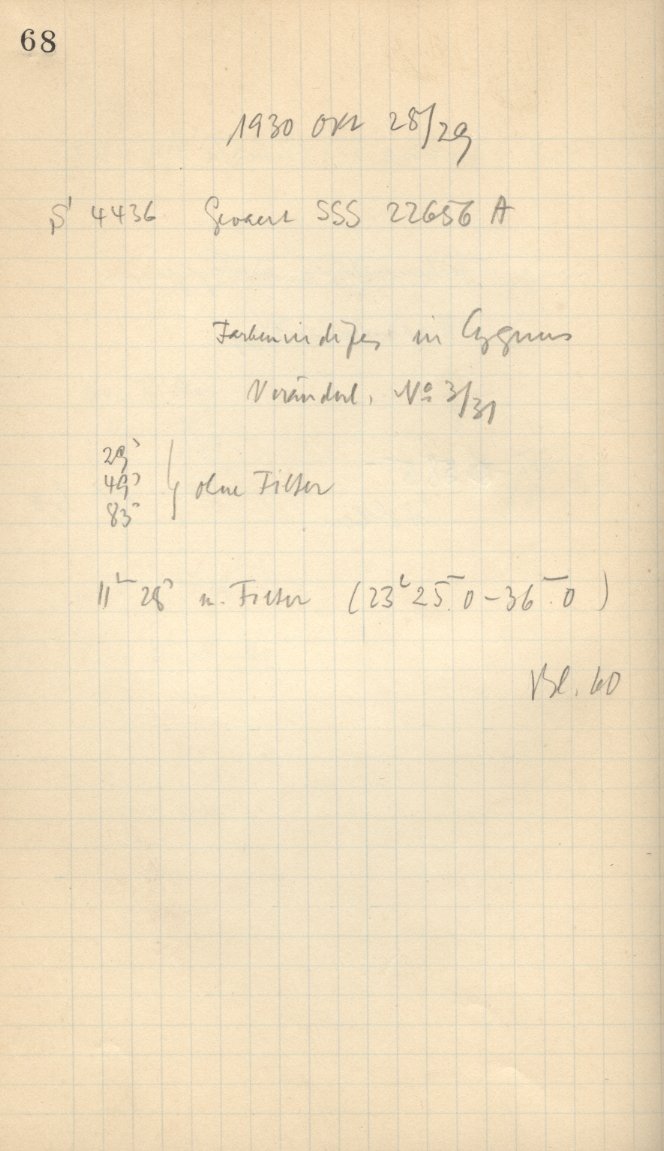 68
1930 Okt 28/29
S 4436 Gevaert SSS 22656 A
Farbenindizes in Cygnus
Veränderl. No 3/31
29s
49s
83s
} ohne Filter
11m 28s m. Filter (23h 25m.0 – 36m.0)
Bl. 60